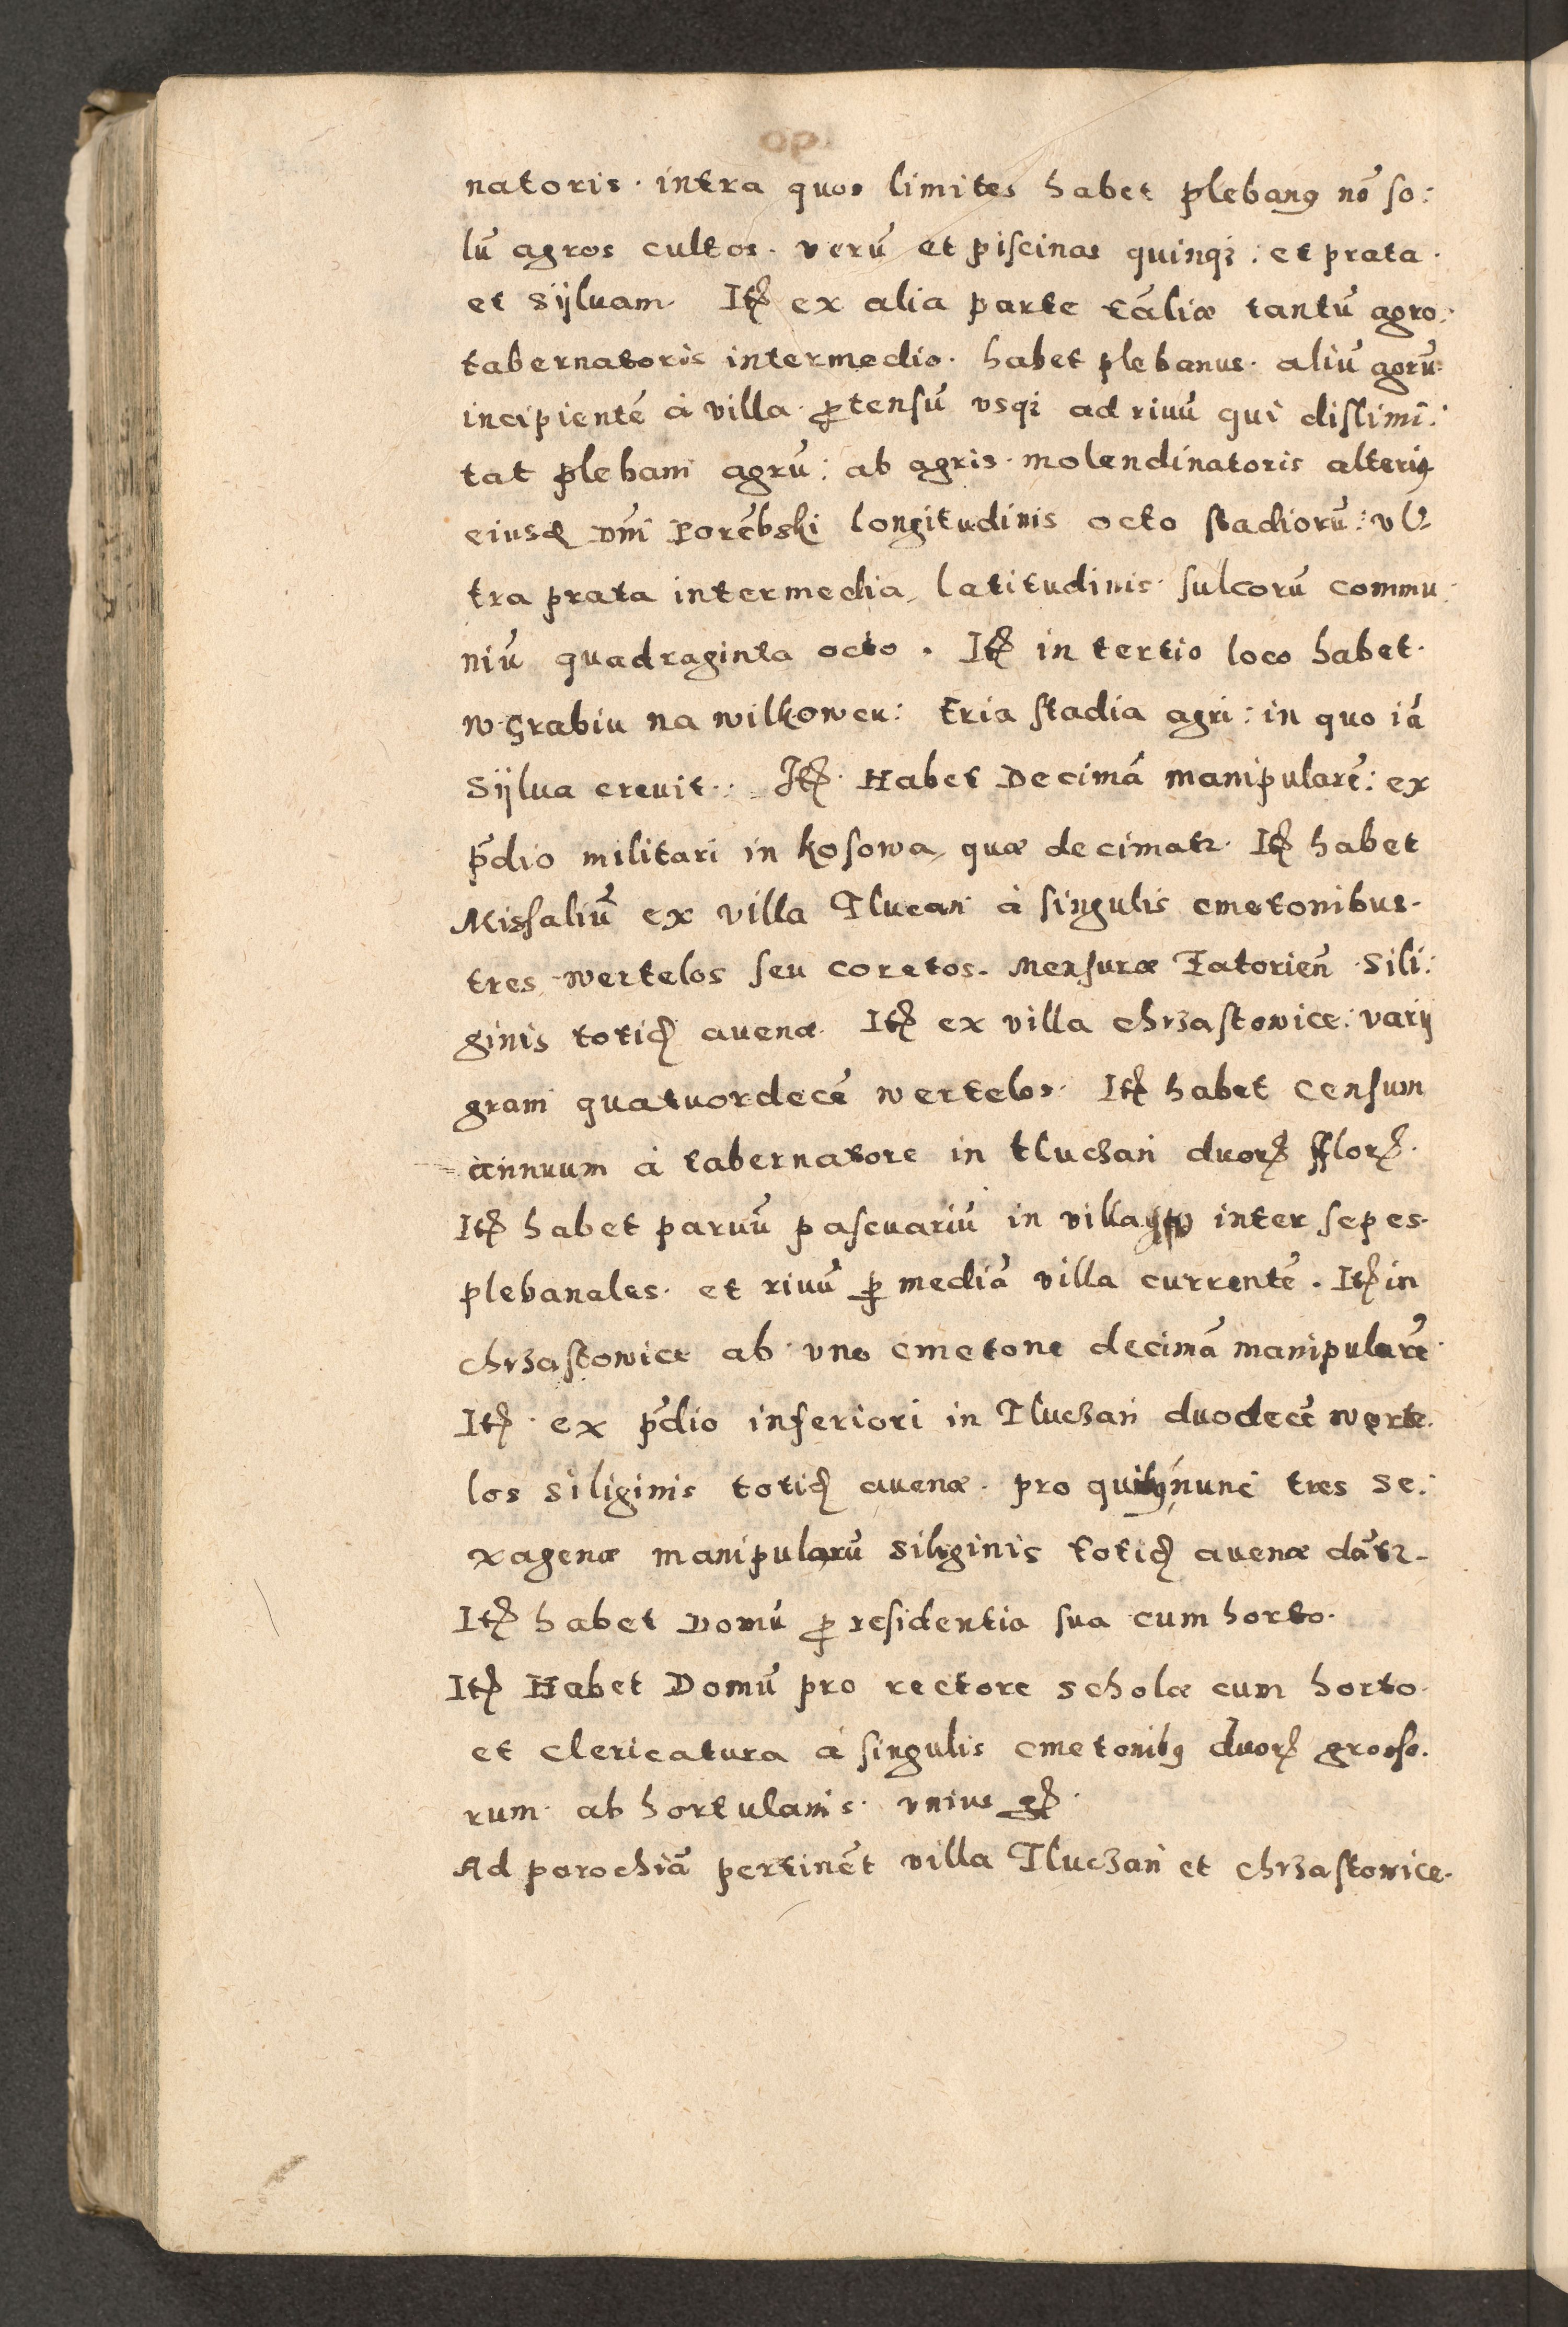 natoris. intra quos limites habet plebanꝰ nō so:
lū agros cultos. verū et piscinas quinqꝫ: et prata.
et sylvam. Itē ex alia parte ecāliæ tantū agro:
tabernatoris intermedio. habet plebanus. aliū agrū:
incipientē à villa. ꝓtensū vsqꝫ ad riuū qui distimi:
tat plebani agrū: ab agris. molendinatoris alteriꝰ
eiusd. Dn̄i Porēbski longitudinis octo stadiorū: vl:
tra prata intermedia, latitudinis sulcorū commu:
niū quadraginta octo. Itē in tertio loco habet.
w grabiu na wilkowcu: tria stadia agri: in quo iā
Sylua creuit: Itē. Habet Decimā manipularē: ex
p̄dio militari in kosowa, quæ decimatꝛ. Itē habet
Missaliū ex villa Tlucan à singulis cmetonibus.
tres wertelos seu coretos. Mensuræ Zatorien̄ Sili:
ginis totid. avenæ. Itē ex villa chrzastowice: varij
grani quatuordecē wertelos. Itē habet Censum
annuum à tabernatore in tluczan duorꝝ fflorꝝ.
Itē habet paruū pascuariū in villa inter sepes.
plebanales. et riuū ꝑ mediā villa currentē. Itē in
chrzastowice ab vno cmetone decimā manipularē.
Itē. ex p̄dio inferiori in Tluczan duodecē werte.
los siliginis totid. avenæ. pro quibꝰ nunc tres se:
xagenæ manipularū siliginis totid. avenæ dātꝛ.
Itē habet Domū ꝓ residentia sua cum horto.
Itē Habet Domū pro rectore scholæ cum horto.
et clericatura à singulis cmetonibꝰ duorꝝ grosso.
rum. ab hortulanis. vnius gꝝ.
Ad parochiā pertinēt villa Tluczan et chrzastowice.